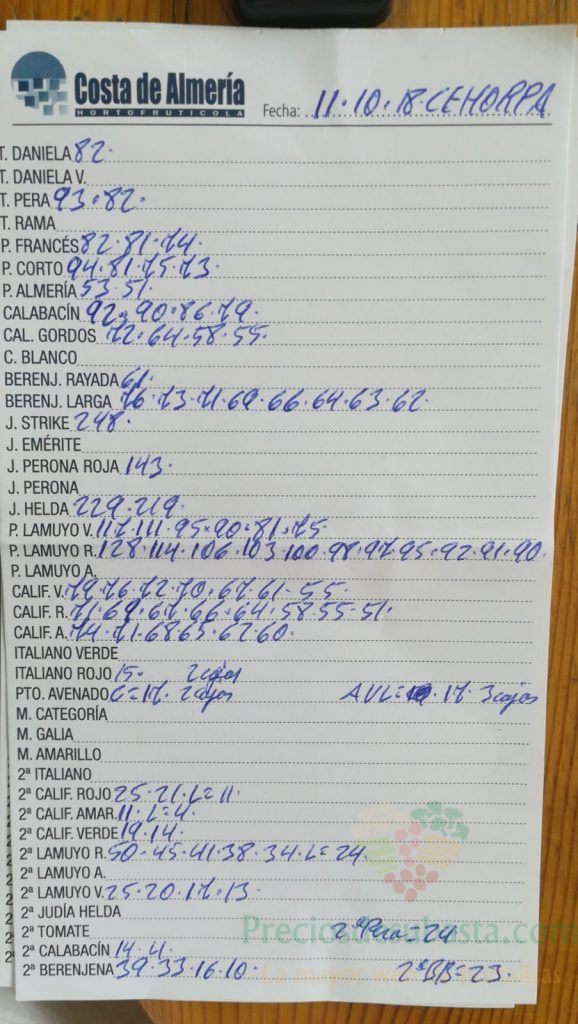 Costa de Almería
HORTOFRUTICOLA
Fecha: 11·10·18·CEHORPA
T. DANIELA 82·
T. DANIELA V.
T. PERA 93·82·
T. RAMA
P. FRANCÉS 82·81·74·
P. CORTO 94·81·75·73·
P. ALMERÍA 53·51·
CALABACÍN 92·90·86·79·
CAL. GORDOS 72·64·58·55·
C. BLANCO
BERENJ. RAYADA 61·
BERENJ. LARGA 76·73·71·69·66·64·63·62·
J. STRIKE 248·
J. EMÉRITE
J. PERONA ROJA 143·
J. PERONA
J. HELDA 229·219·
P. LAMUYO V. 117·111·95·90·81·75·
P. LAMUYO R. 128·114·106·103·100·98·97·95·92·91·90·
P. LAMUYO A.
CALIF. V. 79·76·72·70·67·61·55·
CALIF. R. 71·69·67·66·64·58·55·51·
CALIF. A. 74·71·68·65·62·60·
ITALIANO VERDE
ITALIANO ROJO 15· 2 cajas
PTO. AVENADO C=17· 2 cajas AVL= 17· 3 cajas
M. CATEGORÍA
M. GALIA
M. AMARILLO
2ª ITALIANO
2ª CALIF. ROJO 25·21·L=11·
2ª CALIF. AMAR. 11·L=4·
2ª CALIF. VERDE 19·14·
2ª LAMUYO R. 50·45·41·38·34·L=24·
2ª LAMUYO A.
2ª LAMUYO V. 25·20·17·13·
2ª JUDÍA HELDA
Preciosdesubasta.com
2ª TOMATE 2ª Pera=24
2ª CALABACÍN 14·4·
2ª BERENJENA 39·33·16·10· 2ªBB=23·